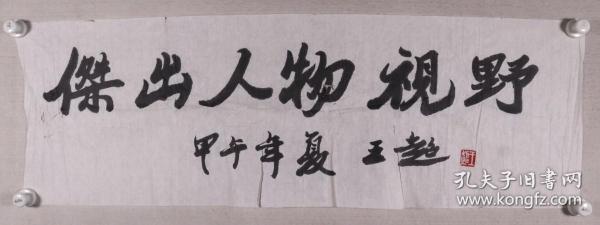 傑出人物視野
甲午年夏 王超
孔夫子旧書网
www.kongfz.com